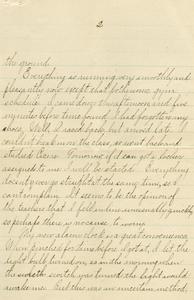 2
the ground.
Everything is running very smoothly and
pleasantly now except that bothersome gym
schedule. I came down this afternoon and five
minutes before time found I had forgotten my
shoes. Well, I raced back, but arrived late. I
couldn't make the class, so went back and
studied Cicero. Tomorrow if I can get a locker
assigned to me I will be started. Everything
doesn't go wrong straight at the same time, so I
can't complain. It seems to be the opinion of
the teachers that I fell unreasonably quickly
so perhaps there is no cause to worry.
My new alarm clock is a great convenience.
When I watched for time before I got it, I let the
light turned on, so in the morning when
the was turned the light would
wake me. But this was an uncertain method.